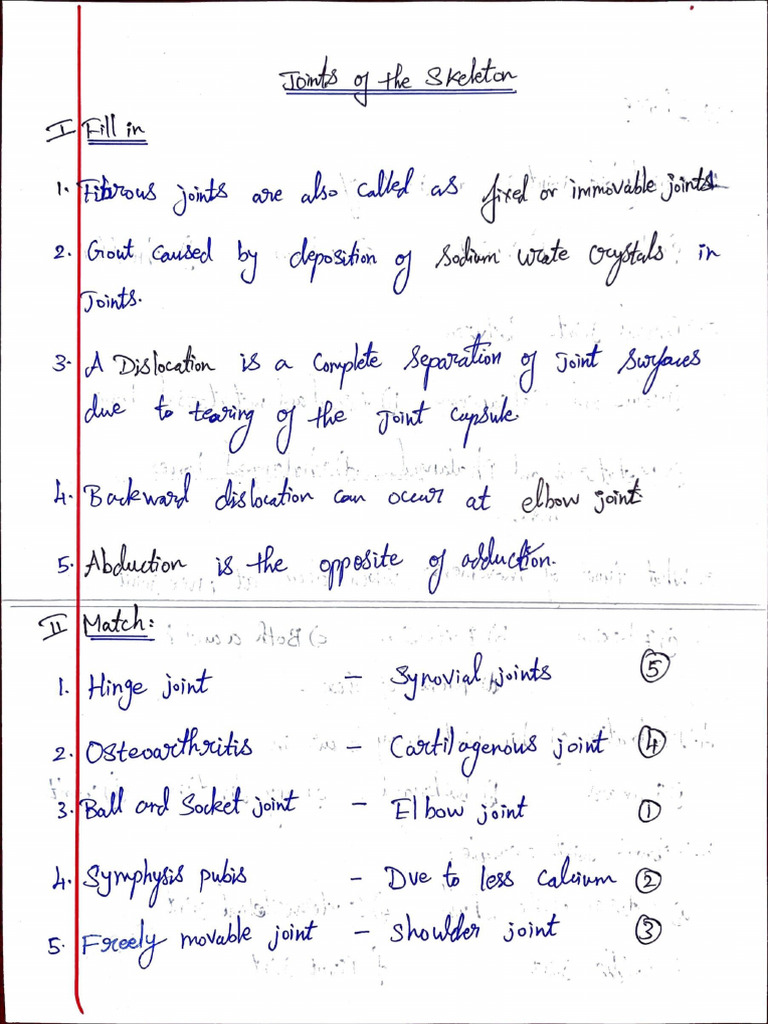 Joints of the Skeleton
I Fill in
1. Fibrous joints are also called as fixed or immovable joints
2. Gout caused by deposition of Sodium urate crystals in
Joints.
3. A Dislocation is a complete separation of joint surfaces
due to tearing of the Joint capsule.
4. Backward dislocation can occur at elbow joint.
5. Abduction is the opposite of adduction.
II Match:
1. Hinge joint - Synovial joints 5
2. Osteoarthritis - Cartilagenous joint 4
3. Ball and Socket joint - Elbow joint 1
4. Symphysis pubis - Due to less calcium 2
5. Freely movable joint - Shoulder joint 3